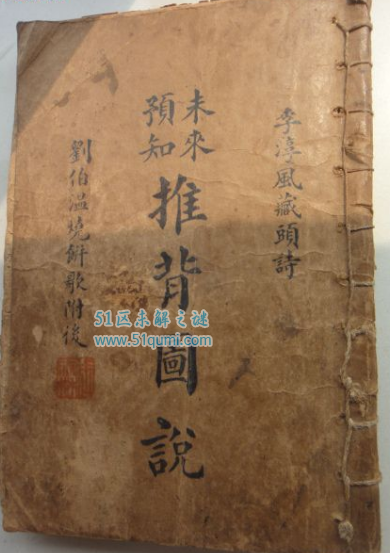 李淳風藏頭詩
未來
預知
推背圖說
劉伯溫燒餅歌附後
51区未解之谜
www.51qumi.com